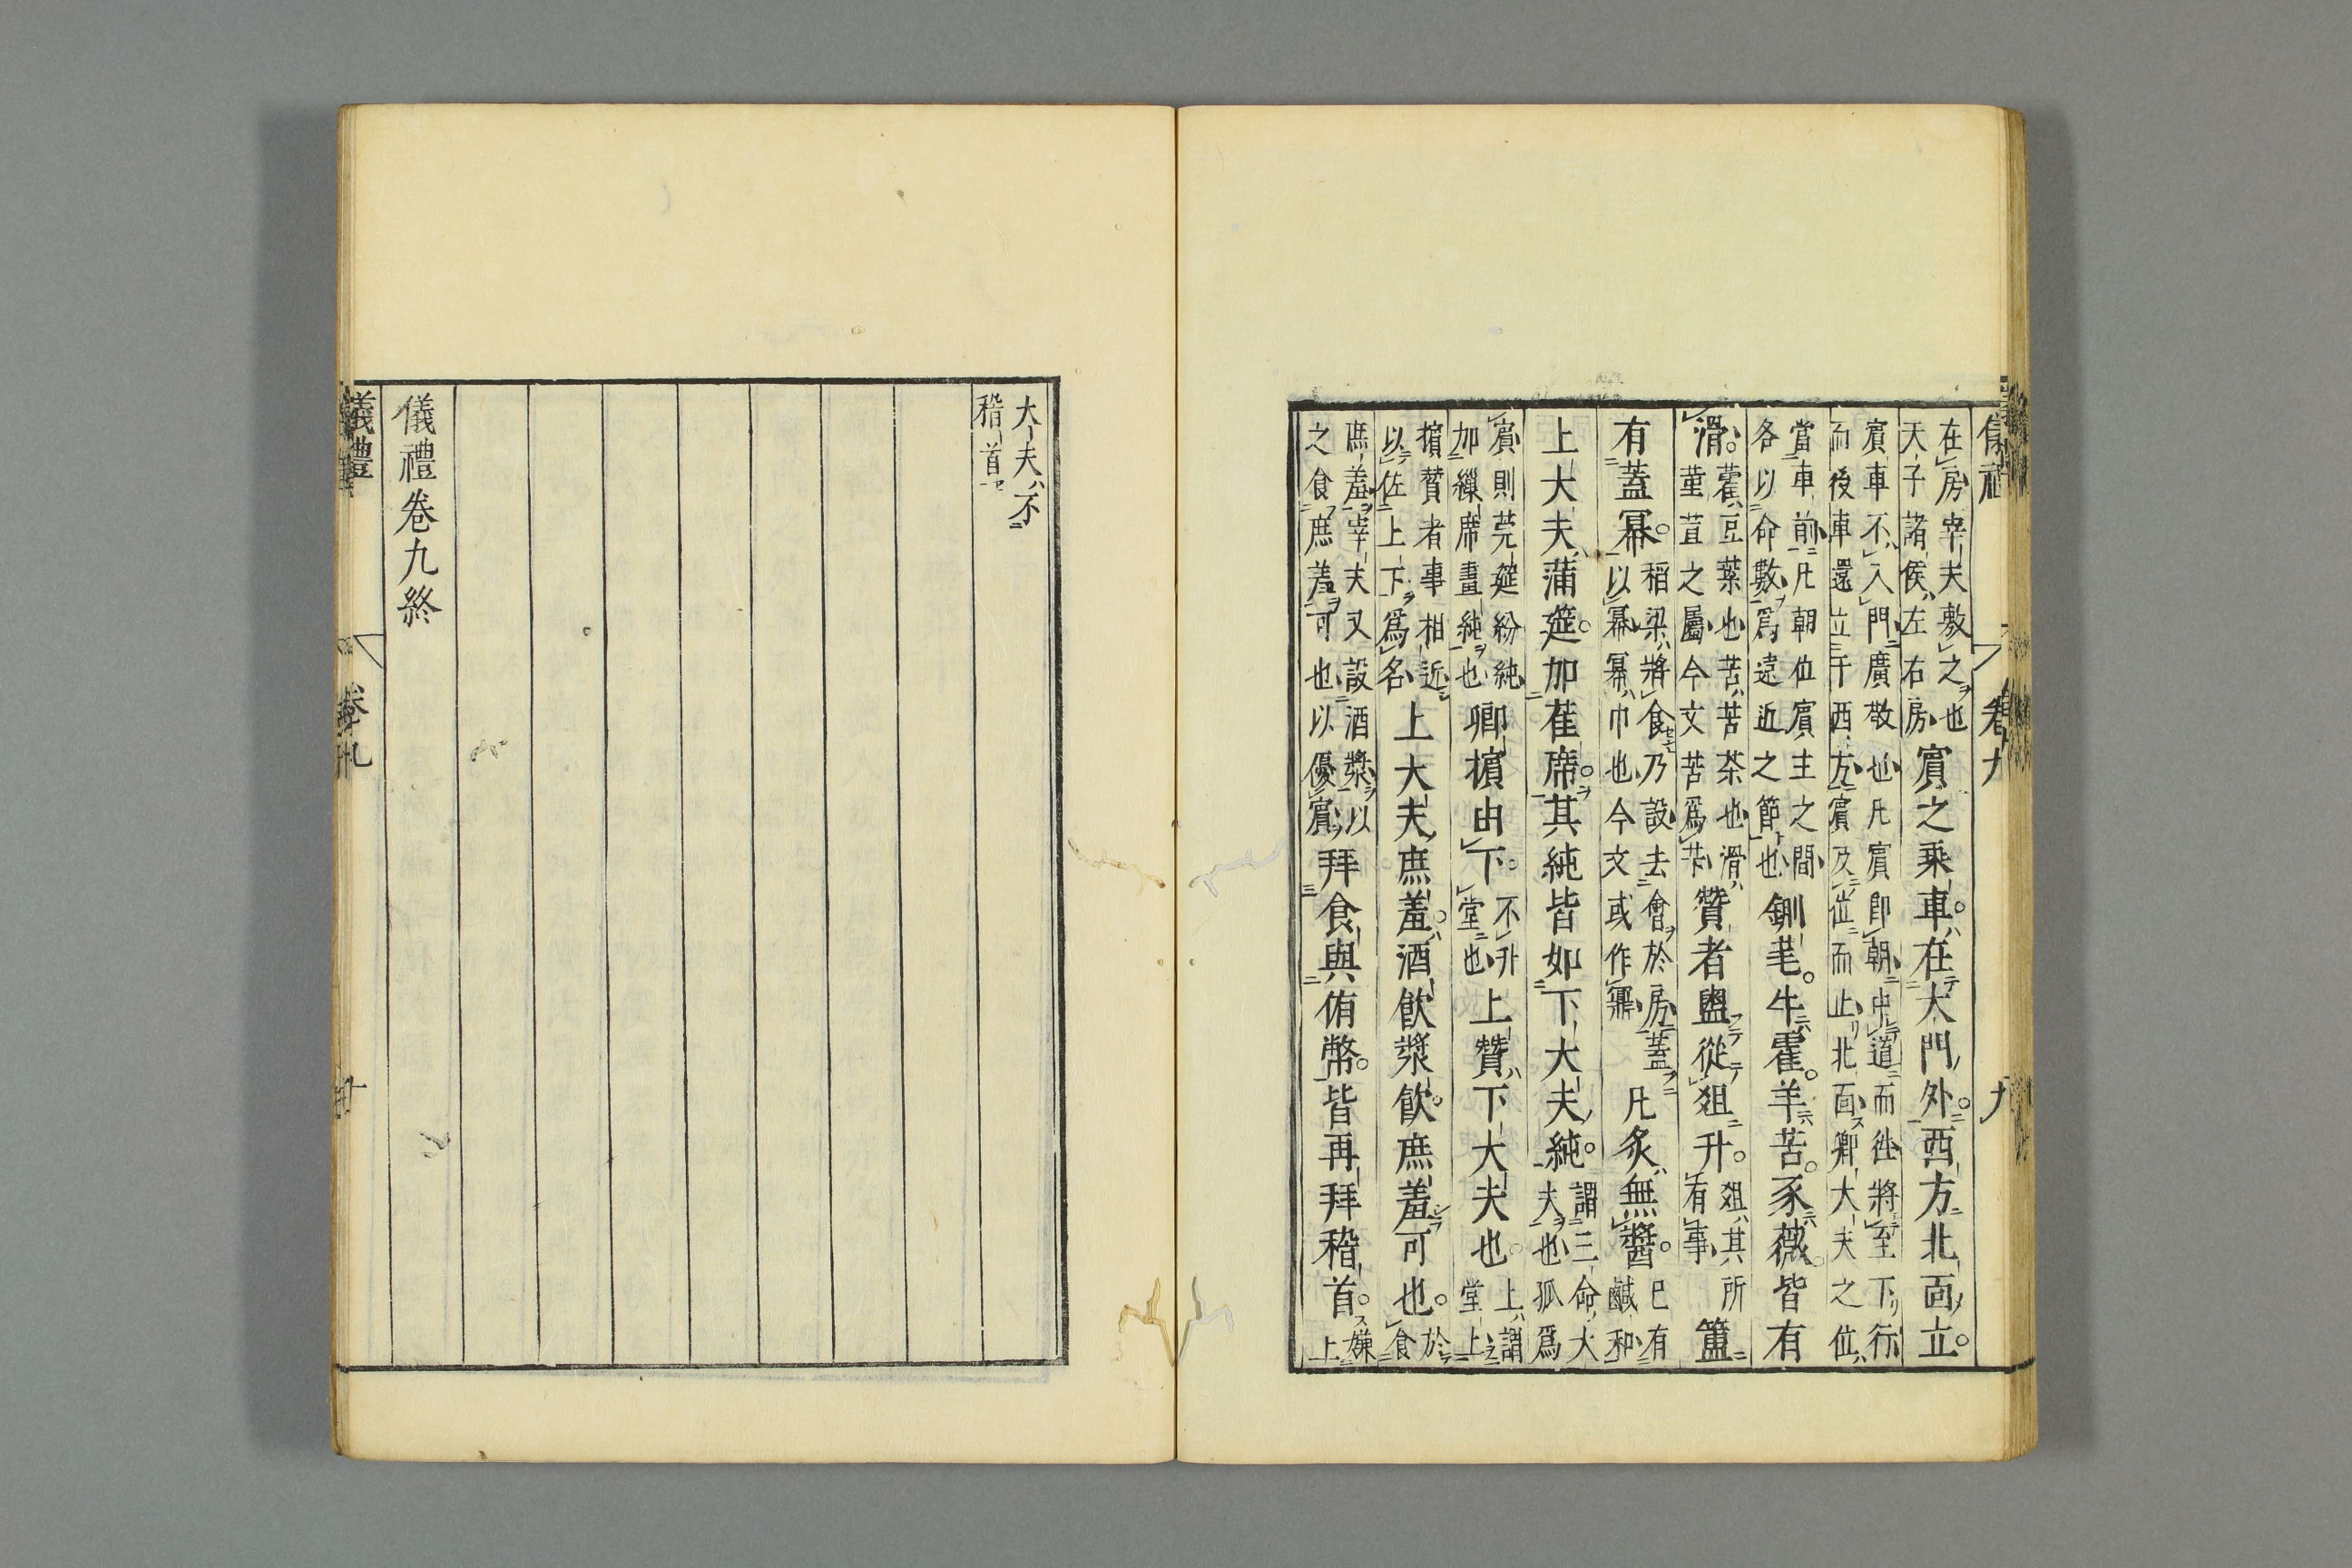 在房宰夫敷之也
天子諸侯左右房
賓之乘車。在大門外。西方北面立。
賓車不入門廣敬也凡賓即朝中道而往將至下行
而後車還立于西方賓及位而止北面卿大夫之位
當車前凡朝位賓主之間
各以命數爲遠近之節也
鉶芼。牛藿。羊苦。豕薇。皆有
滑。
藿豆葉也苦苦荼也滑
菫荁之屬今文苦爲芐
贊者盥從俎升。
俎其所
有事
簠
有蓋冪。
稻粱將食乃設去會於房蓋
以冪冪巾也今文或作羃
凡炙無醬。
已有
鹹和
上大夫蒲筵。加萑席。其純皆如下大夫純。
謂三命大
夫也孤爲
賓則莞筵紛純
加繅席畫純也
卿擯由下。
不升
堂也
上贊下大夫也。
上謂
堂上
擯贊者事相近
以佐上下爲名
上大夫庶羞。酒飲漿飲。庶羞可也。
於
食
庶羞宰夫又設酒漿以
之食庶羞可也以優賓
拜食與侑幣。皆再拜稽首。
嫌
上
大夫不
稽首
儀禮卷九終
儀禮 卷九 廿